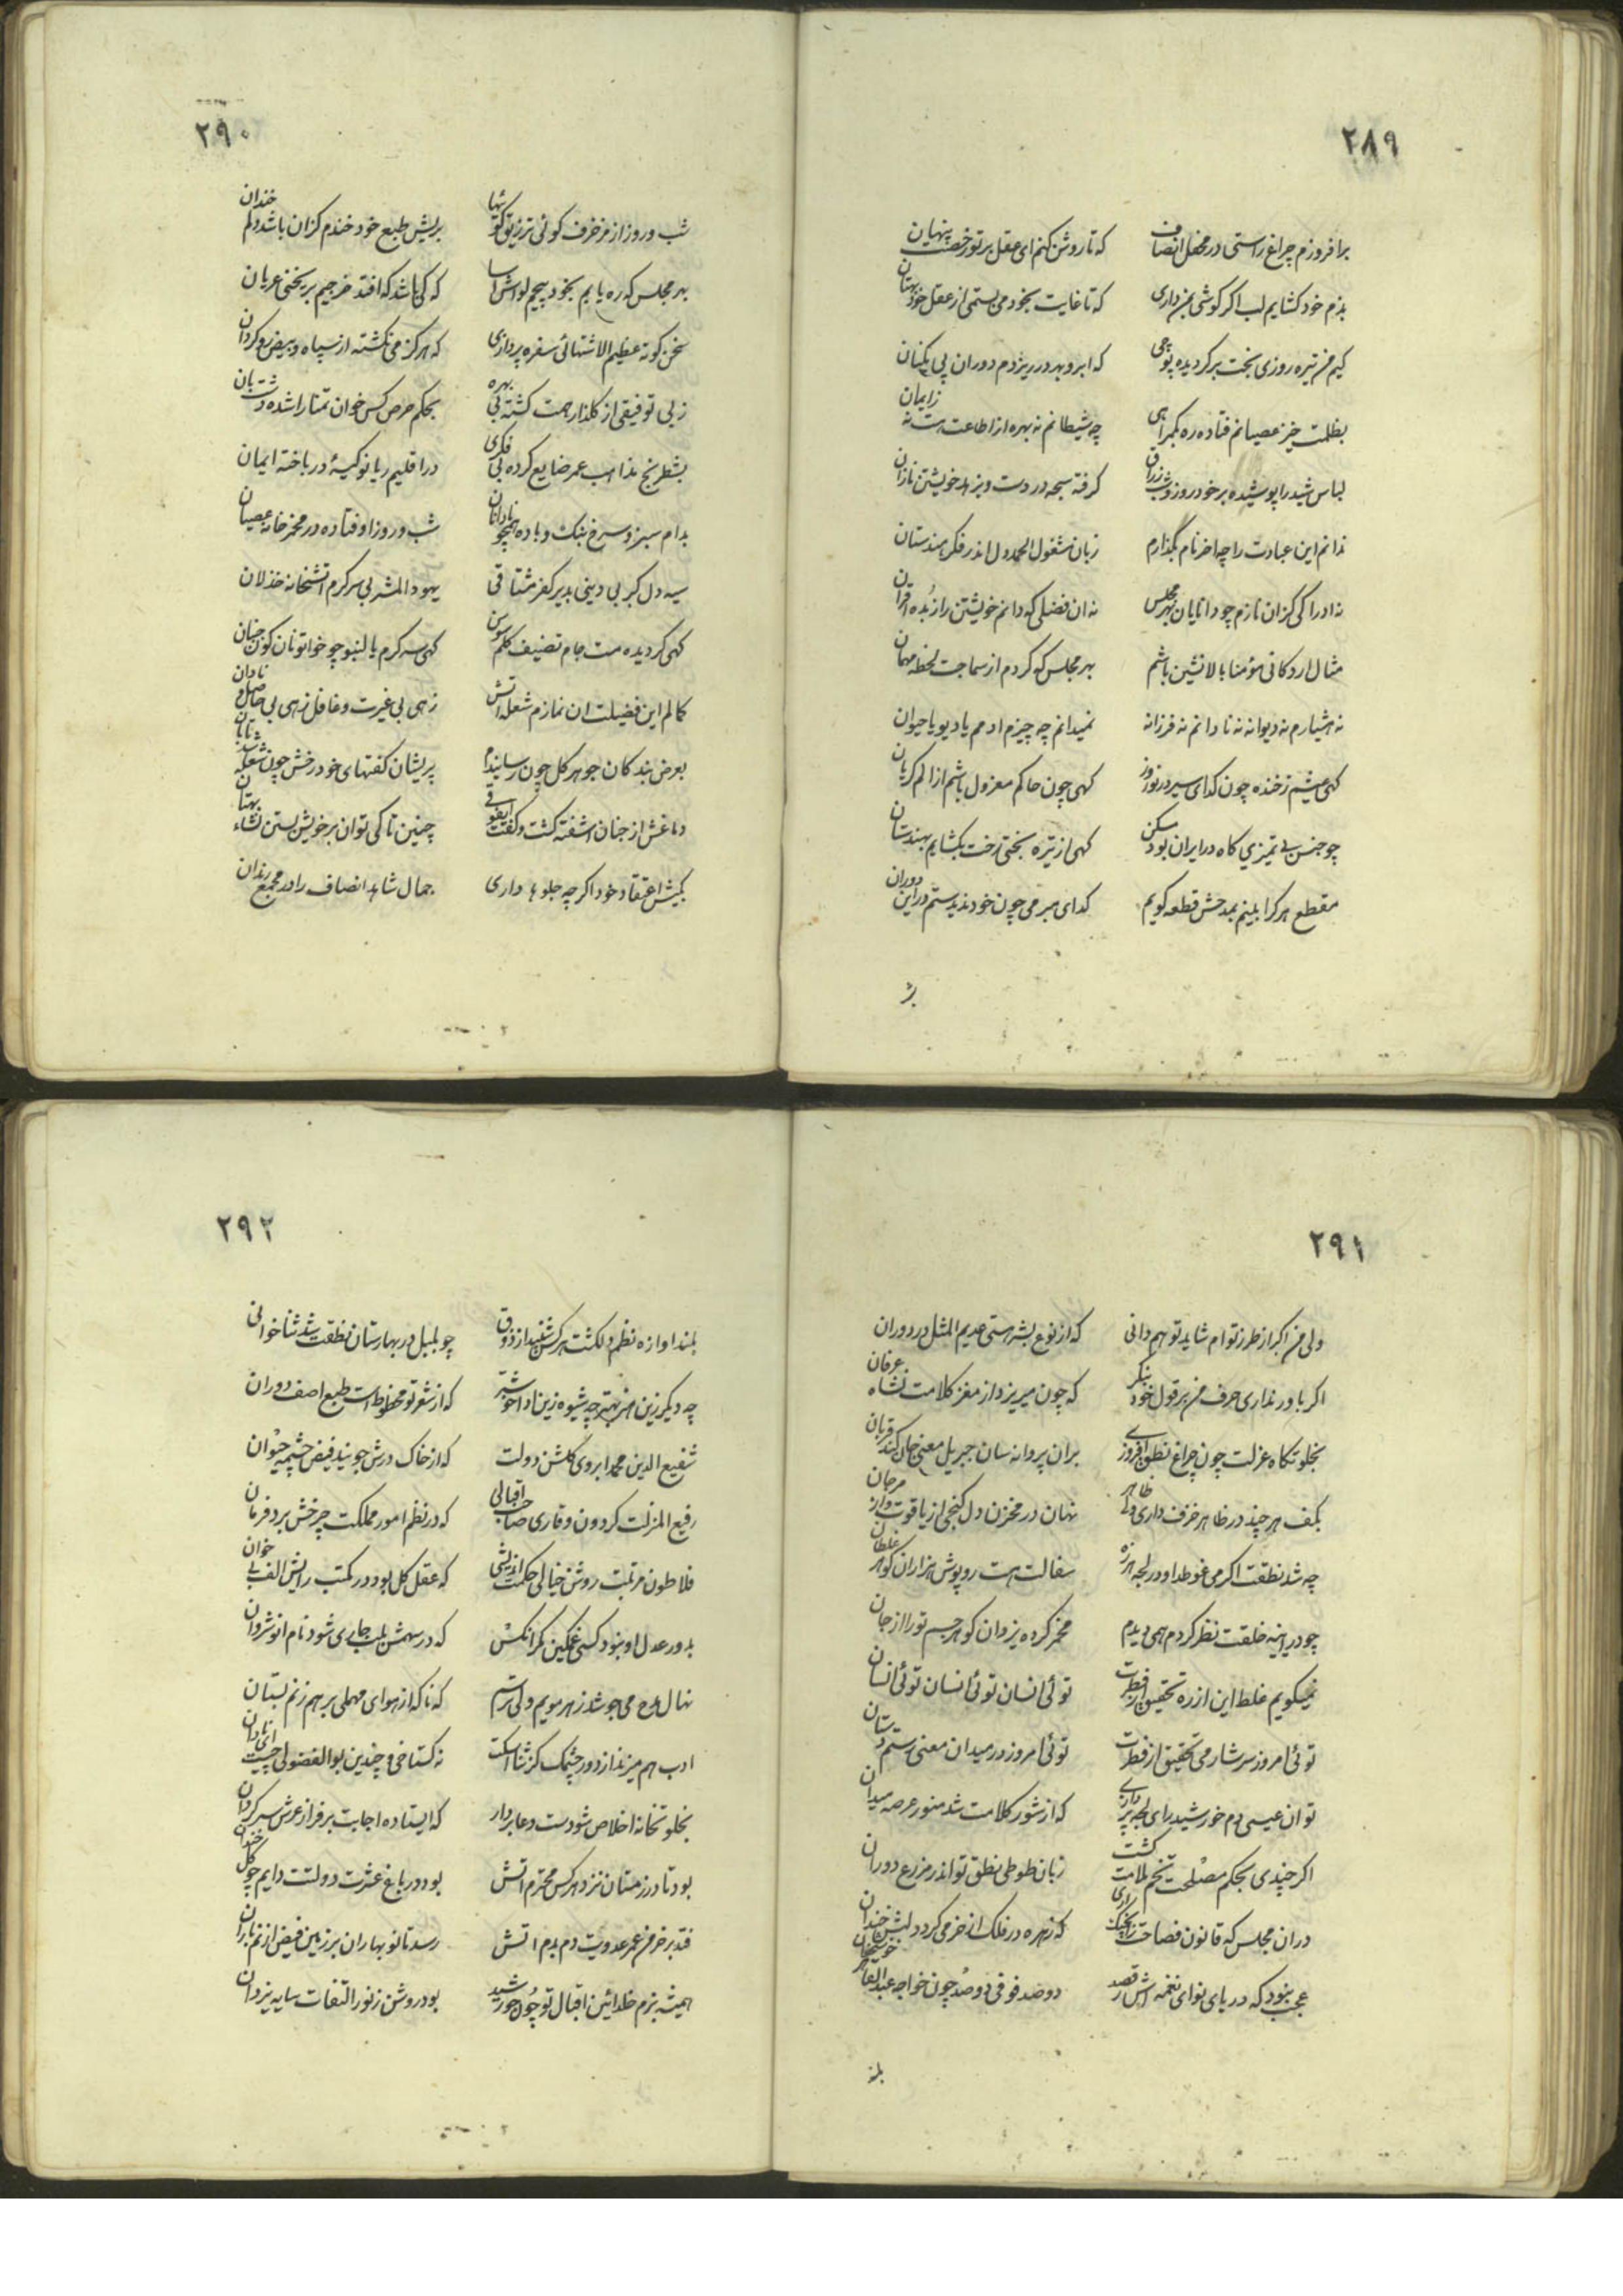 ۲۸۹
برافروزم چراغ راستی در محفل انصاف که تا روشن کنم ای عقل بر تو پنهان
بذم خود کشایم لب اکر کوشی بمن داری که تا غایت بخود می بستمی از عقل خود بهتان
کیم من تیره روزی بخت بر کردیده که ابرو بهر در ریزدم دوران پی یکنان
بظلمت خیز عصیانم فتاده ره بکمراهی چه شیطانم نه بهره از اطاعت هست نه زایمان
لباس شید را پوشیده بر خود روز و شب زراق کرفته سبحه در دست و بزهد خویشتن نازان
ندانم این عبادت را چه اخر نام بگذارم زبان مشغول الحمد و دل اندر فکر هندستان
نه ادراکی کزان نازم چو دانایان بهر مجلس نه ان فضلی که دانم خویشتن را زبده اقران
مثال اردکانی مؤمنا بالا نشین باشم بهر مجلس که کردم از سماجت لحظه مهمان
نه هشیارم نه دیوانه نه نادانم نه فرزانه نمیدانم چه چیزم ادمم یا دیو یا حیوان
کهی عیشم ز خنده چون کدای سیر در نوروز کهی چون حاکم معزول باشم از الم کریان
چو جنس بی تمیزی کاه در ایران بود مسکن کهی از تیره بختی رخت بکشایم بهندستان
مقطع هر کرا بینم بمدحش قطعه کویم کدای مبرمی چون خود ندیدستم در این دوران
بر
۲۹۰
شب و روز از مزخرف کوئی تزریق کو تنها بریش طبع خود خندم کزان باشد دلم خندان
بهر مجلس که ره یابم بخود پیچم لواش اسا که کی باشد که افتد خرجیم بر یخنی عریان
سخن کوته عظیم الاشتهائی سفره پردازی که هرگز می نکشته از سپاه و بیض رو کردان
ز بی توفیقی از کلذار همت کشته بی بهره بحکم حرص کس خوان تمنا را شده دشتبان
بشطرنج مذاهب عمر ضایع کرده بی فکری در اقلیم ریا نو کیسهٔ در باخته ایمان
بدام سبز و سرخ بنک و باده همچو نادانان شب و روز اوفتاده در مخزخانه عصیان
سیه دل کبر بی دینی بدیر کفر مشتاقی یهود المشربی سرکرم اتشخانه خذلان
کهی کردیده مست جام تصنیف کلم سوسن کهی سرکرم یا لنبو چو خواتونان کون جنبان
کمالم این فضیلت ان نمازم شعله اتش زهی بی غیرت و غافل زهی بی حاصل و نادان
بعرض بندکان جوهر کل چون رسانیدم پریشان کفتهای خود رخش چون شعله شد تابان
دماغش از جنان اشفته کشت و کفت ای فوقی چنین تا کی توان بر خویش بستن نشاء بهتان
بکیش اعتقاد خود اکر چه جلوها داری جمال شاهد انصاف را در مجمع رندان
۲۹۱
ولی من اکبر از طرز تو ام شاید تو هم دانی که از نوع بشر هستی عدیم المثل در دوران
اکر باور نداری حرف من بر قول خود بنکر که چون میریزد از مغز کلامت نشاه عرفان
بخلوتکاه عزلت چون چراغ نطق افروزی بران پروانه سان جبریل معنی جان کند قربان
بکف هر چند در ظاهر خزف داری ولی نهان در مخزن دل کنجی از یاقوت و از مرجان
چه شد نطقت اکر می غوطد او در لجه هرزه سفالت هست روپوش هزاران کوهر غلطان
چو در اینه خلقت نظر کردم همی دیدم مخمر کرده یزدان کوهر جسم تو را از جان
نمیکویم غلط این از ره تحقیق فطرت توئی انسان توئی انسان توئی انسان
توئی امروز سرشار می تحقیق از فطرت توئی امروز در میدان معنی رستم دستان
توان عیسی دم خورشید رای که از شور کلامت شد منور عرصه میدان
اکر چندی بحکم مصلحت تخم ملامت کشت زبان طوطی نطق تو اندر مزرع دوران
دران مجلس که قانون فصاحت که زهره در فلک از خرمی کردد لبش خندان
عجب نبود که در پای نوای نغمه اش رقصد دو صد فوقی دو صد چون خواجه عبدالقادر خوشخوان
بلند
۲۹۲
بلند اوازه نظم دلکشت هر کس شنید از ذوق چو بلبل در بهارستان نظقت شد ثنا خوانی
چه دیگر زین هنر بهتر چه شیوه زین ادا خوشتر که از شعر تو محظوظ است طبع اصف دوران
شفیع الدین محمد ابروی کلشن دولت که از خاک درش جوئید فیض چشمه حیوان
رفیع المنزلت کردون وقاری صاحب اقبالی که در نظم امور مملکت چرخش برد فرمان
فلاطون مرتبت روشن خیالی حکمت اندیشی که عقل کل بود در مکتب رایش الف بی خوان
بدور عدل او نبود کسی غمکین مکر انکس که در سهمش بلب جاری شود نام انوشروان
نهال مدح می جوشد ز هر مویم ولی ترسم که ناکه از هوای مهملی بر هم زنم بستان
ادب هم میزند از دور چشمک کز ثنا نه کستاخی و چندین بو الفضولی چیست ای نادان
بخلوتخانه اخلاص شو دست دعا بردار که ایستاده اجابت بر فراز عرش سرکردان
بود تا در زمستان نزد هر کس محترم اتش بود در باغ عشرت دولتت دایم چو کل خندان
فتد بر خرمن عمر عدویت دم بدم اتش رسد تا نو بهاران بر زمین فیض از نم باران
همیشه بزم خلد ائین اقبال تو چون خورشید بود روشن ز نور التفات سایه یزدان